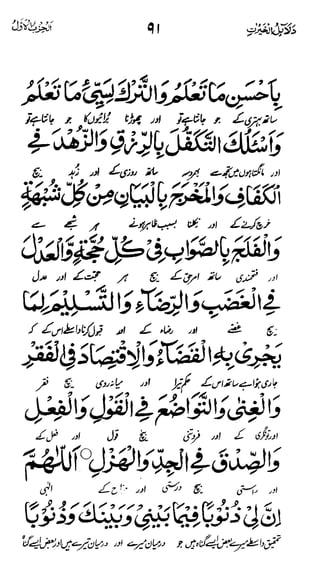 دلائل الخیرات ۹۱ الحزب الاول
بِاَحْسَنِ مَا تَعْلَمُ وَالتَّرْكَ لِسَيِّئِ مَا تَعْلَمُ
ساتھ بہتری کے جو جانتا ہے تو اور چھوڑنا برائیوں کا جو جانتا ہے تو
وَاَسْئَلُكَ التَّكَفُّلَ بِالرِّزْقِ وَالزُّهْدَ فِي
اور مانگتا ہوں میں تجھ سے بھروسہ ساتھ روزی کے اور زہد بیچ
الْكَفَافِ وَالْمَخْرَجَ بِالْبَيَانِ مِنْ كُلِّ شُبْهَةٍ
خرچ کرنے کے اور نکلنا بسبب ظاہر ہونے ہر شبہے سے
وَالْفَلَجَ بِالصَّوَابِ فِيْ كُلِّ حُجَّةٍ وَّالْعَدْلَ
اور فتحمندی ساتھ امر حق کے بیچ ہر حجت کے اور عدل
فِي الْغَضَبِ وَالرِّضَاءِ وَالتَّسْلِيْمَ لِمَا
بیچ غصے اور رضاء کے اور قبول کرنا واسطے اس کے کہ
يَجْرِيْ بِهِ الْقَضَاءُ وَالْاِقْتِصَادَ فِي الْفَقْرِ
جاری ہوا ہے ساتھ اس کے حکم تیرا اور میانہ روی بیچ فقر
وَالْغِنٰى وَالتَّوَاضُعَ فِي الْقَوْلِ وَالْفِعْلِ
اور تونگری کے اور فروتنی بیچ قول اور فعل کے
وَالصِّدْقَ فِي الْجِدِّ وَالْهَزْلِ ○ اَللّٰهُمَّ
اور راستی بیچ درستی اور کے الٰہی
اِنَّ لِيْ ذُنُوْبًا فِيْمَا بَيْنِيْ وَبَيْنَكَ وَذُنُوْبًا
تحقیق واسطے میرے بعض ایسے گناہ ہیں جو درمیان میرے اور درمیان تیرے ہیں اور بعض ایسے گناہ